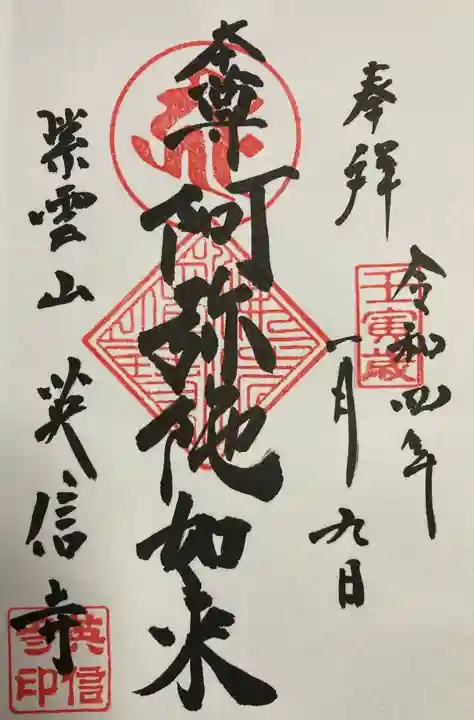 奉拝
令和四年
一月九日
壬寅歳
本尊
阿弥陀如来
紫雲山 英信寺
英信寺印